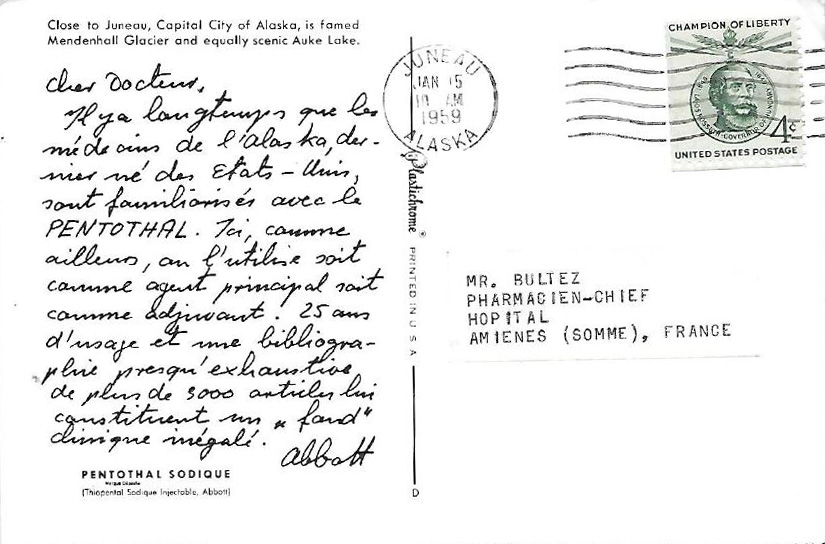 Close to Juneau, Capital City of Alaska, is famed
Mendenhall Glacier and equally scenic Auke Lake.
Cher Docteur,
Il y a longtemps que les
médecins de l'Alaska, der-
nier né des Etats-Unis,
sont familiarisés avec le
PENTOTHAL. Ici, comme
ailleurs, on l'utilise soit
comme agent principal soit
comme adjuvant. 25 ans
d'usage et une bibliogra-
phie presqu'exhaustive
de plus de 3000 articles lui
constituent un „fond"
clinique inégalé.
Abbott
PENTOTHAL SODIQUE
Marque Déposée
(Thiopental Sodique Injectable, Abbott)
Plastichrome ®
PRINTED IN U S A
D
JUNEAU
JAN 15
10 AM
1959
ALASKA
CHAMPION OF LIBERTY
4c
UNITED STATES POSTAGE
MR. BULTEZ
PHARMACIEN-CHIEF
HOPITAL
AMIENES (SOMME), FRANCE